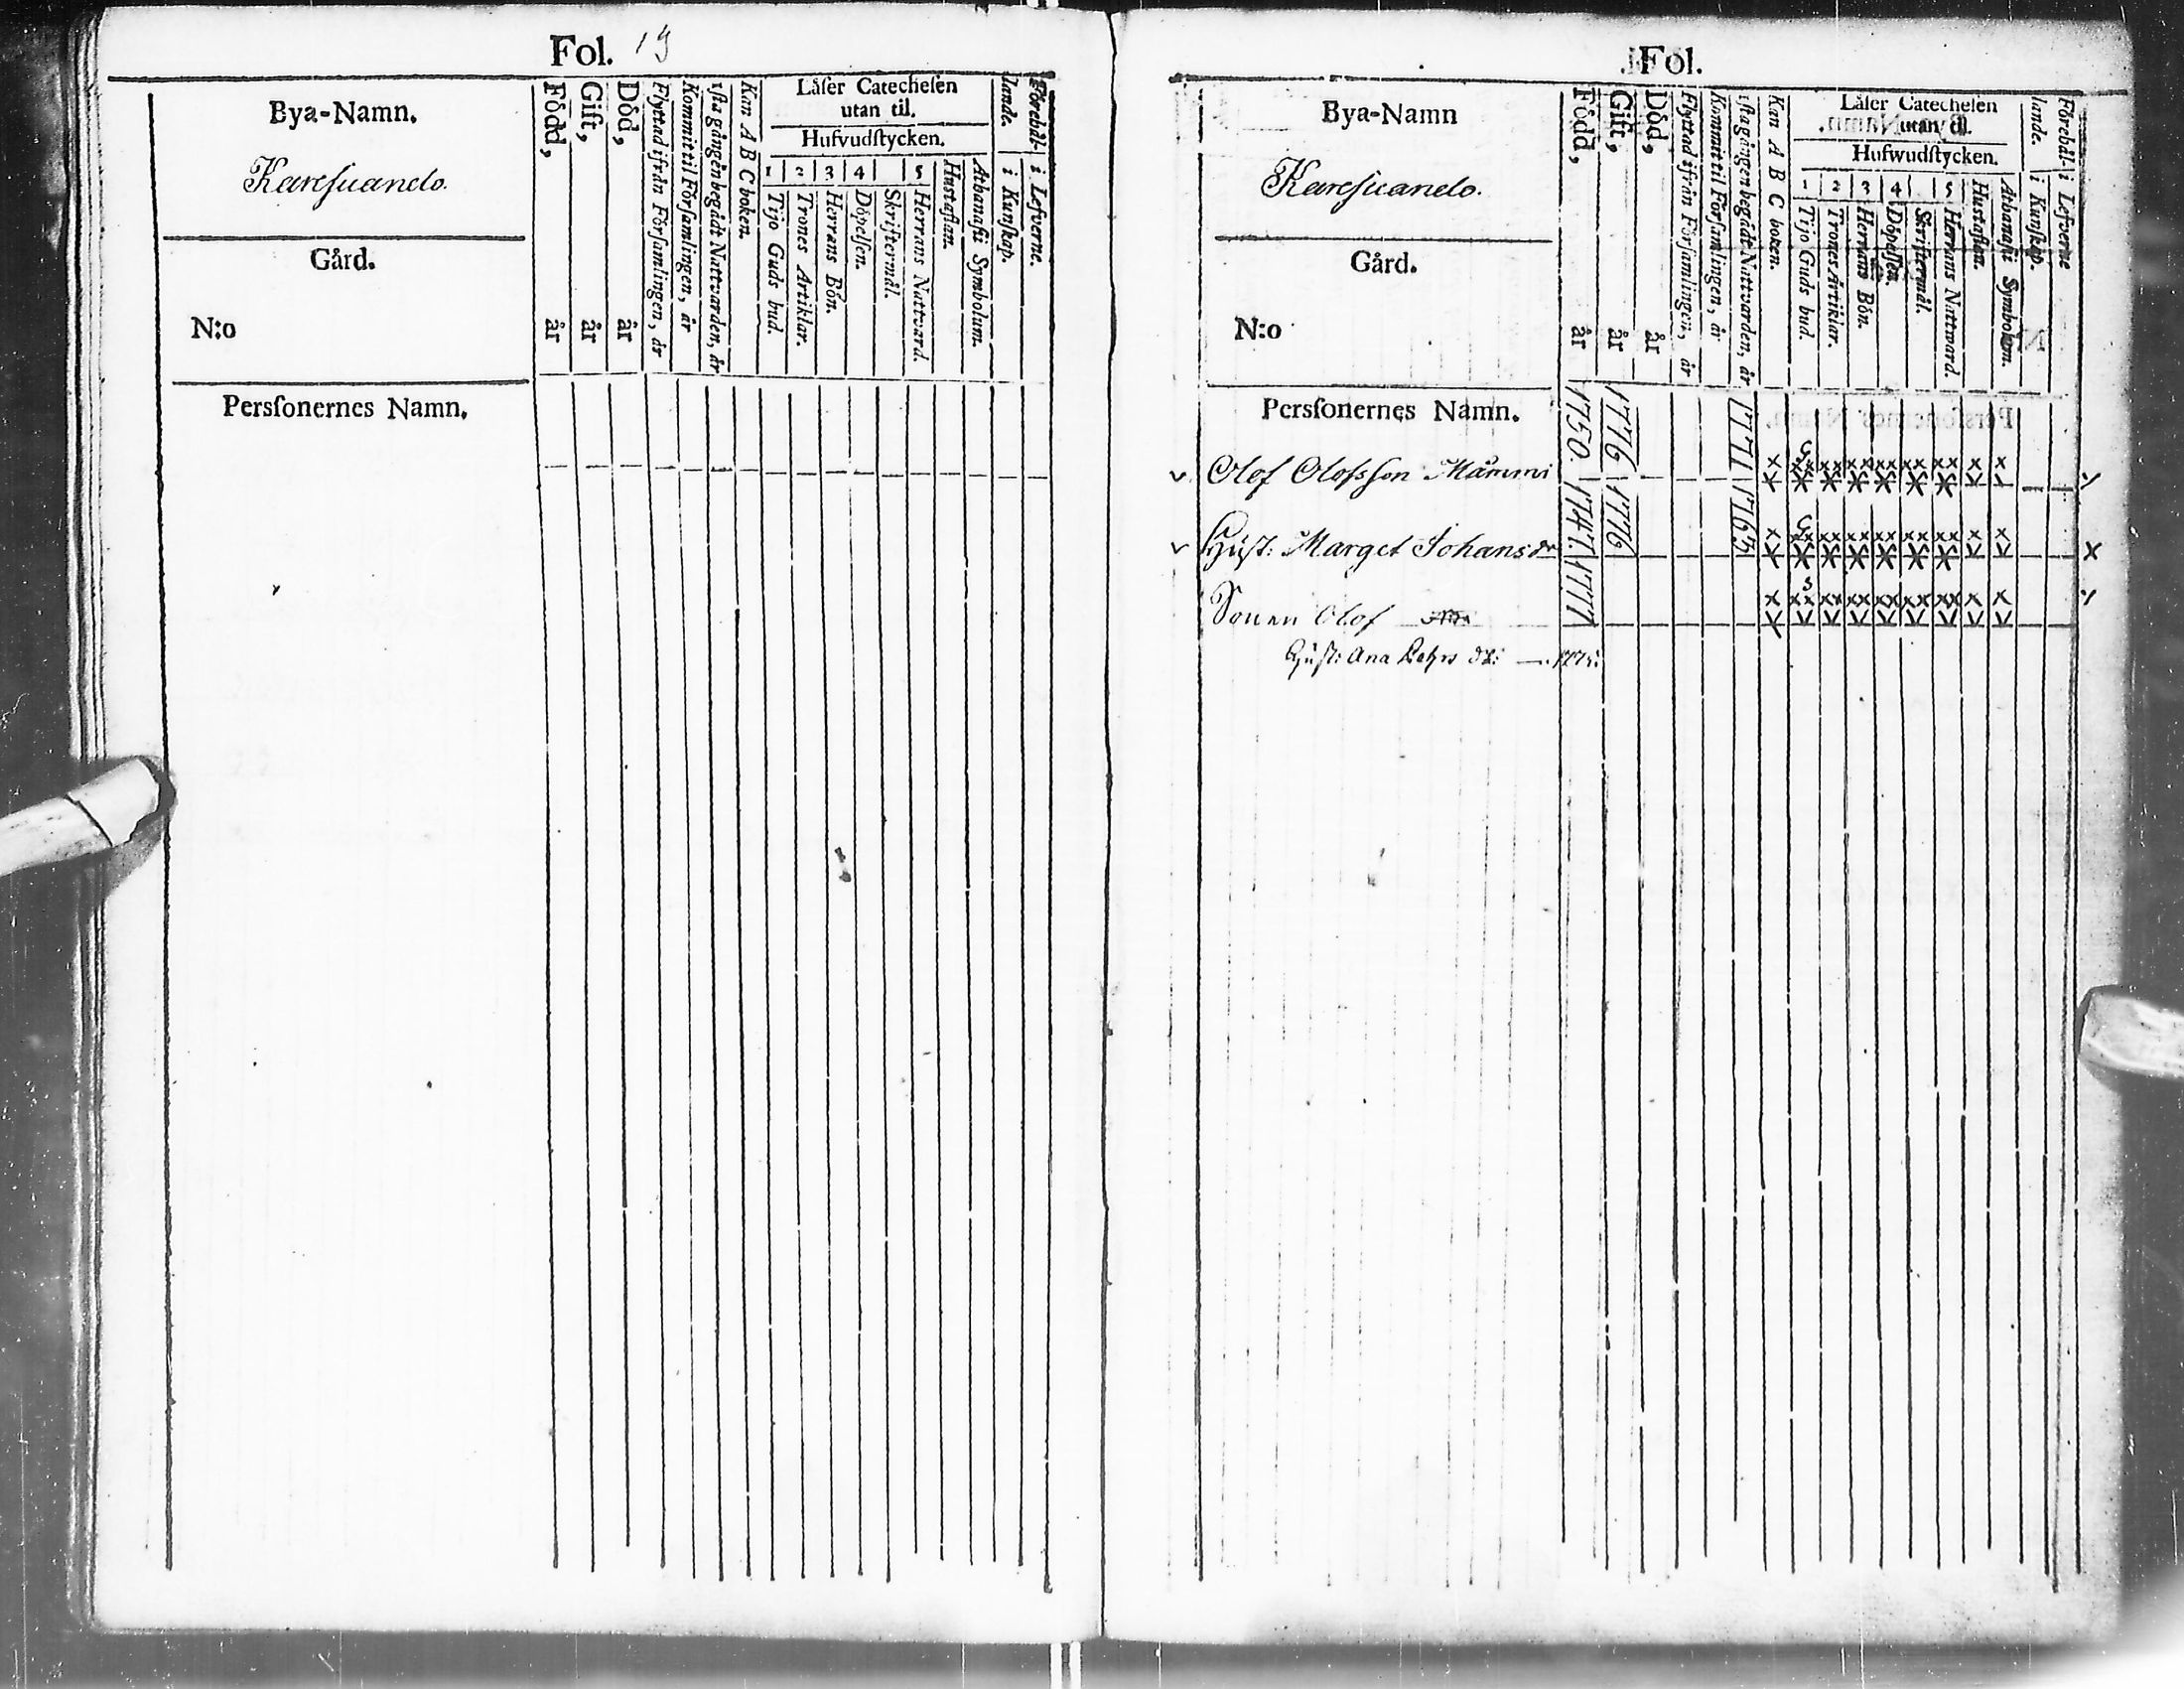 Fol. 19
Bya-Namn.
Karesuando.
Gård.
N:o
Född, år
Gift, år
Död, år
Flyttad ifrån Församlingen, år
Kommit til Församlingen, år
1sta gången begådt Nattvarden, år
Kan A B C boken.
Läser Catechesen
utan til.
Hufvudstycken.
1 2 3 4 5
Tijo Guds bud.
Trones Artiklar.
Herrans Bön.
Döpelsen.
Skriftermål.
Herrans Nattvard.
Hustaflan.
Athanasii Symbolum.
Förehål-
lande.
i Kunskap.
i Lefverne.
Personernes Namn.
Fol.
Bya-Namn
Karesuando.
Gård.
N:o
Född, år
Gift, år
Död, år
Flyttad ifrån Församlingen, år
Kommit til Församlingen, år
1sta gången begådt Nattvarden, år
Kan A B C boken.
Läser Catechesen
utan til.
Hufwudstycken.
1 2 3 4 5
Tijo Guds bud.
Trones Artiklar.
Herrans Bön.
Döpelsen.
Skriftermål.
Herrans Nattward.
Hustaflan.
Athanasii Symbolum.
Förehål-
lande.
i Kunskap.
i Lefverne
Personernes Namn.
Olof Olofsson Mämmi 1750. 1776 1771
Hust: Marget Johansdr 1747. 1776 1765
Sonen Olof 1777
Hust: Ana Pehrs dr: